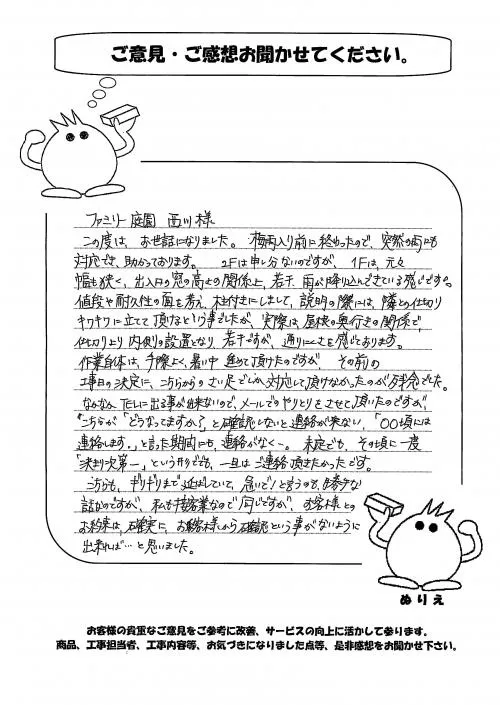 ご意見・ご感想お聞かせてください。
ファミリー庭園 西川様
この度は、お世話になりました。梅雨入り前に終わったので、突然の雨にも
対応でき、助かっております。2Fは申し分ないのですが、1Fは、元々
幅も狭く、出入口の窓の高さの関係上、若干、雨が降り込んできている感じです。
値段や耐久性の面を考え、柱付きにしまして、説明の際には、隣との仕切り
ギリギリに立てて頂けるという事でしたが、実際は、屋根の奥行きの関係で、
仕切りより内側の設置となり、若干ですが、通りにくさを感じております。
作業自体は、手際よく、暑い中進めて頂けたのですが、その前の
工事日の決定に、こちらからのさい足でしか対応して頂けなかったのが残念でした。
なかなかTELに出る事が出来ないので、メールでのやりとりをさせて頂いたのですが、
"こちらが「どうなってますか?」と確認しないと連絡が来ない、「〇〇頃には
連絡します。」と言った期間にも、連絡がなく…。未定でも、その頃に一度
「決まり次第…」という形ででも、一旦はご連絡頂きたかったです。
こちらも、ギリギリまで延ばしていて、急いで!と言うのも、勝手な
話なのですが、私も接客業なので同じですが、お客様との
お約束は、確実に、お客様から確認という事がないように
出来れば…と思いました。
ぬりえ
お客様の貴重なご意見をご参考に改善、サービスの向上に活かして参ります。
商品、工事担当者、工事内容等、お気づきになりました点等、是非感想をお聞かせ下さい。